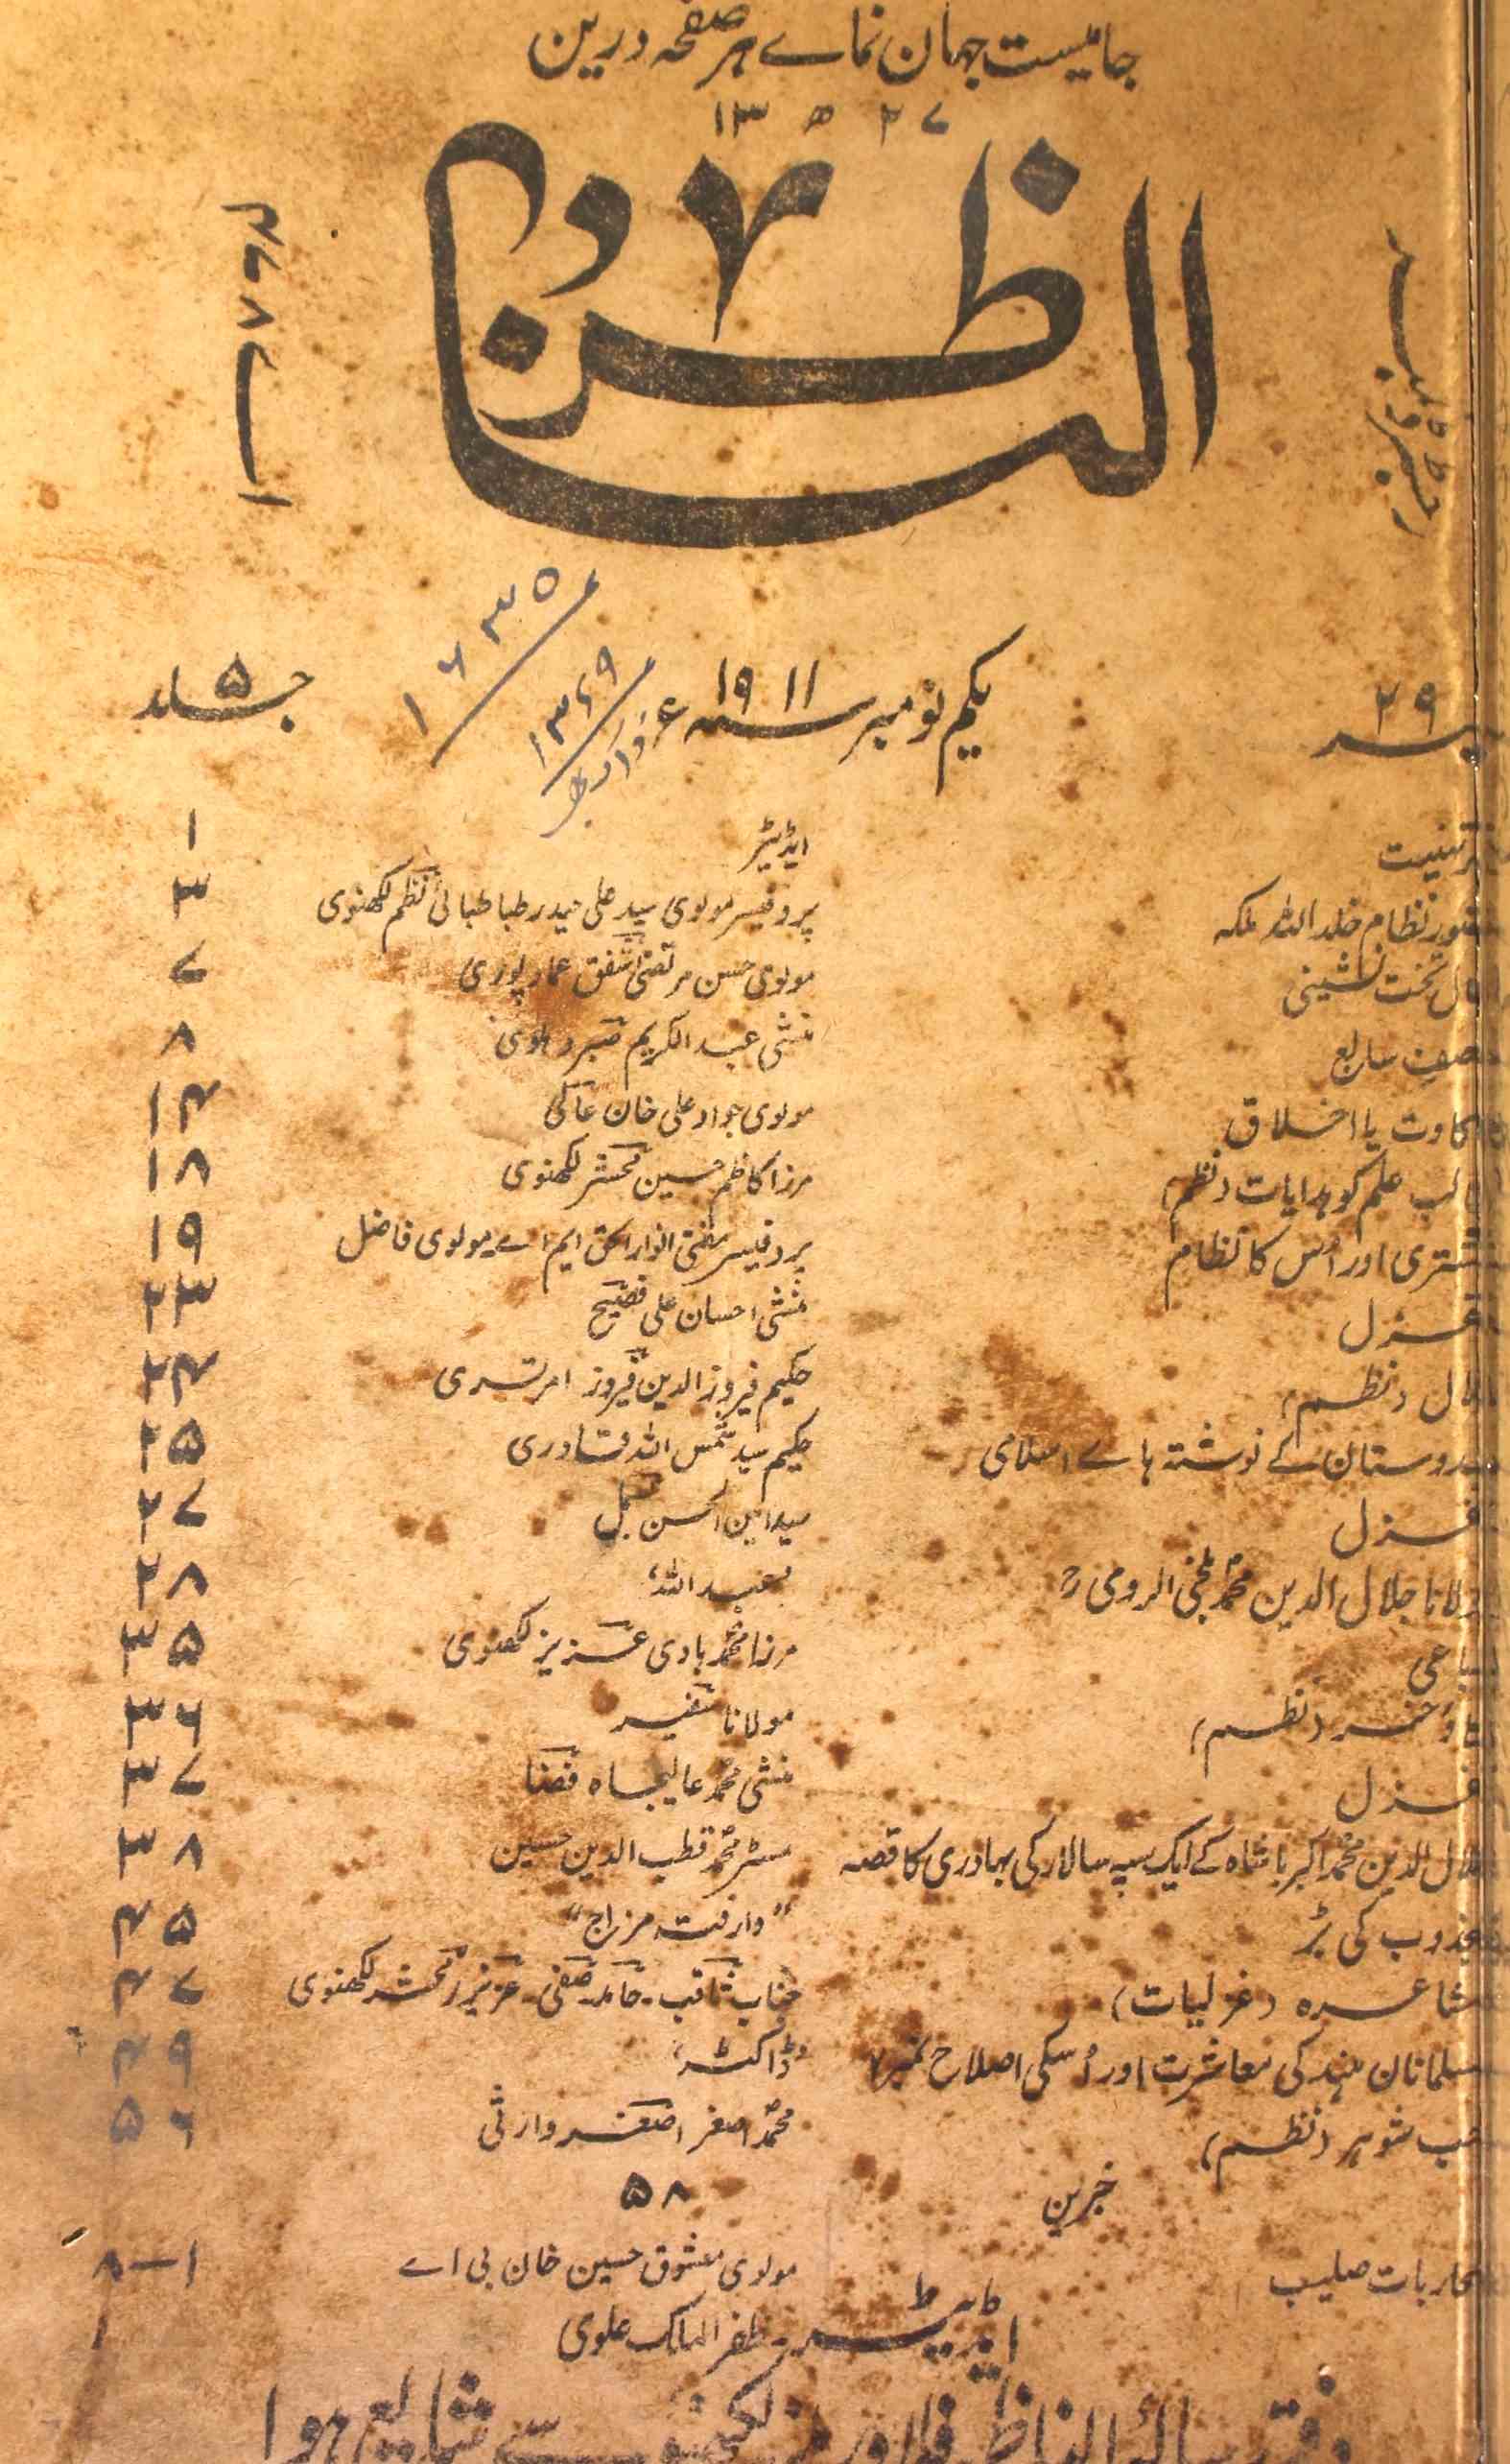 جامیست جہان نماے ہر صفحہ درین
۱۳ ھ ۲۷
الناظر
نمبر ۲۹ یکم نومبر سنہ ۱۹۱۱ ع جلد ۵
۱۶۳۵
۱۳۶۹
تہنیت ایڈیٹر ۱
حضور نظام خلد اللہ ملکہ پروفیسر مولوی سید علی حیدر طباطبائی نظم لکھنوی ۳
سال تخت نشینی مولوی حسن مرتضیٰ شفق عمادپوری ۷
آصف سابع منشی عبدالکریم صبر دہلوی ۸
سخاوت یا اخلاق مولوی جواد علی خان عاکی ۱۴
طالب علم کو ہدایات (نظم) مرزا کاظم حسین محشر لکھنوی ۱۸
مشتری اور اُس کا نظام پروفیسر مفتی انوار الحق ایم اے۔ مولوی فاضل ۱۹
غزل منشی احسان علی فصیح ۲۳
(نظم) حکیم فیروز الدین فیروز امرتسری ۲۴
ہندوستان کے نوشتہ ہاے اسلامی حکیم سید شمس اللہ قادری ۲۵
غزل سید امین الحسن بسمل ۲۷
مولانا جلال الدین محمدؐ بلخی الرومی رح عبداللہ ۲۸
رباعی مرزا محمدؐ ہادی عزیز لکھنوی ۳۵
(نظم) مولانا سفیر ۳۶
غزل منشی محمدؐ عالیجاہ فضنا ۳۷
جلال الدین محمدؐ اکبر بادشاہ کے ایک سپہ سالار کی بہادری کا قصہ مسٹر محمدؐ قطب الدین حسین ۳۸
مجذوب کی بڑ "وارفتہ مزاج" ۴۵
مشاعرہ (غزلیات) جناب ثاقب۔ حامد۔ صفی۔ عزیز۔ محشر لکھنوی ۴۷
مسلمانان ہند کی معاشرت اور اُسکی اصلاح نمبر ۷ "ڈاکٹر" ۴۹
حب شوہر (نظم) محمدؐ اصغر اصغر وارثی ۵۶
خبرین ۵۸
محاربات صلیب مولوی معشوق حسین خان بی اے ۱–۸
ایڈیٹر۔ ظفر الملک علوی
دفتر رسالہ الناظر لکھنؤ سے شایع ہوا